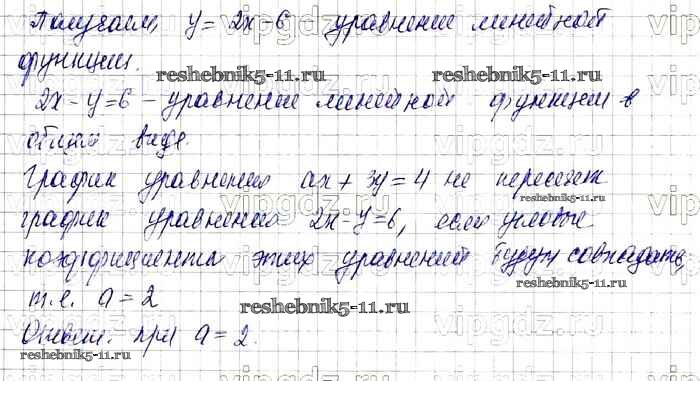 Получаем, y = 2x - 6 уравнение линейной
функции.
reshebnik5-11.ru reshebnik5-11.ru
2x - y = 6 - уравнение линейной функции в
общем виде.
График уравнения ax + 3y = 4 не пересечёт
reshebnik5-11.ru
график уравнения 2x - y = 6, если угловые
коэффициенты этих уравнений будут совпадать,
т.е. a = 2
reshebnik5-11.ru
Ответ: при a = 2.
reshebnik5-11.ru
vipgdz.ru